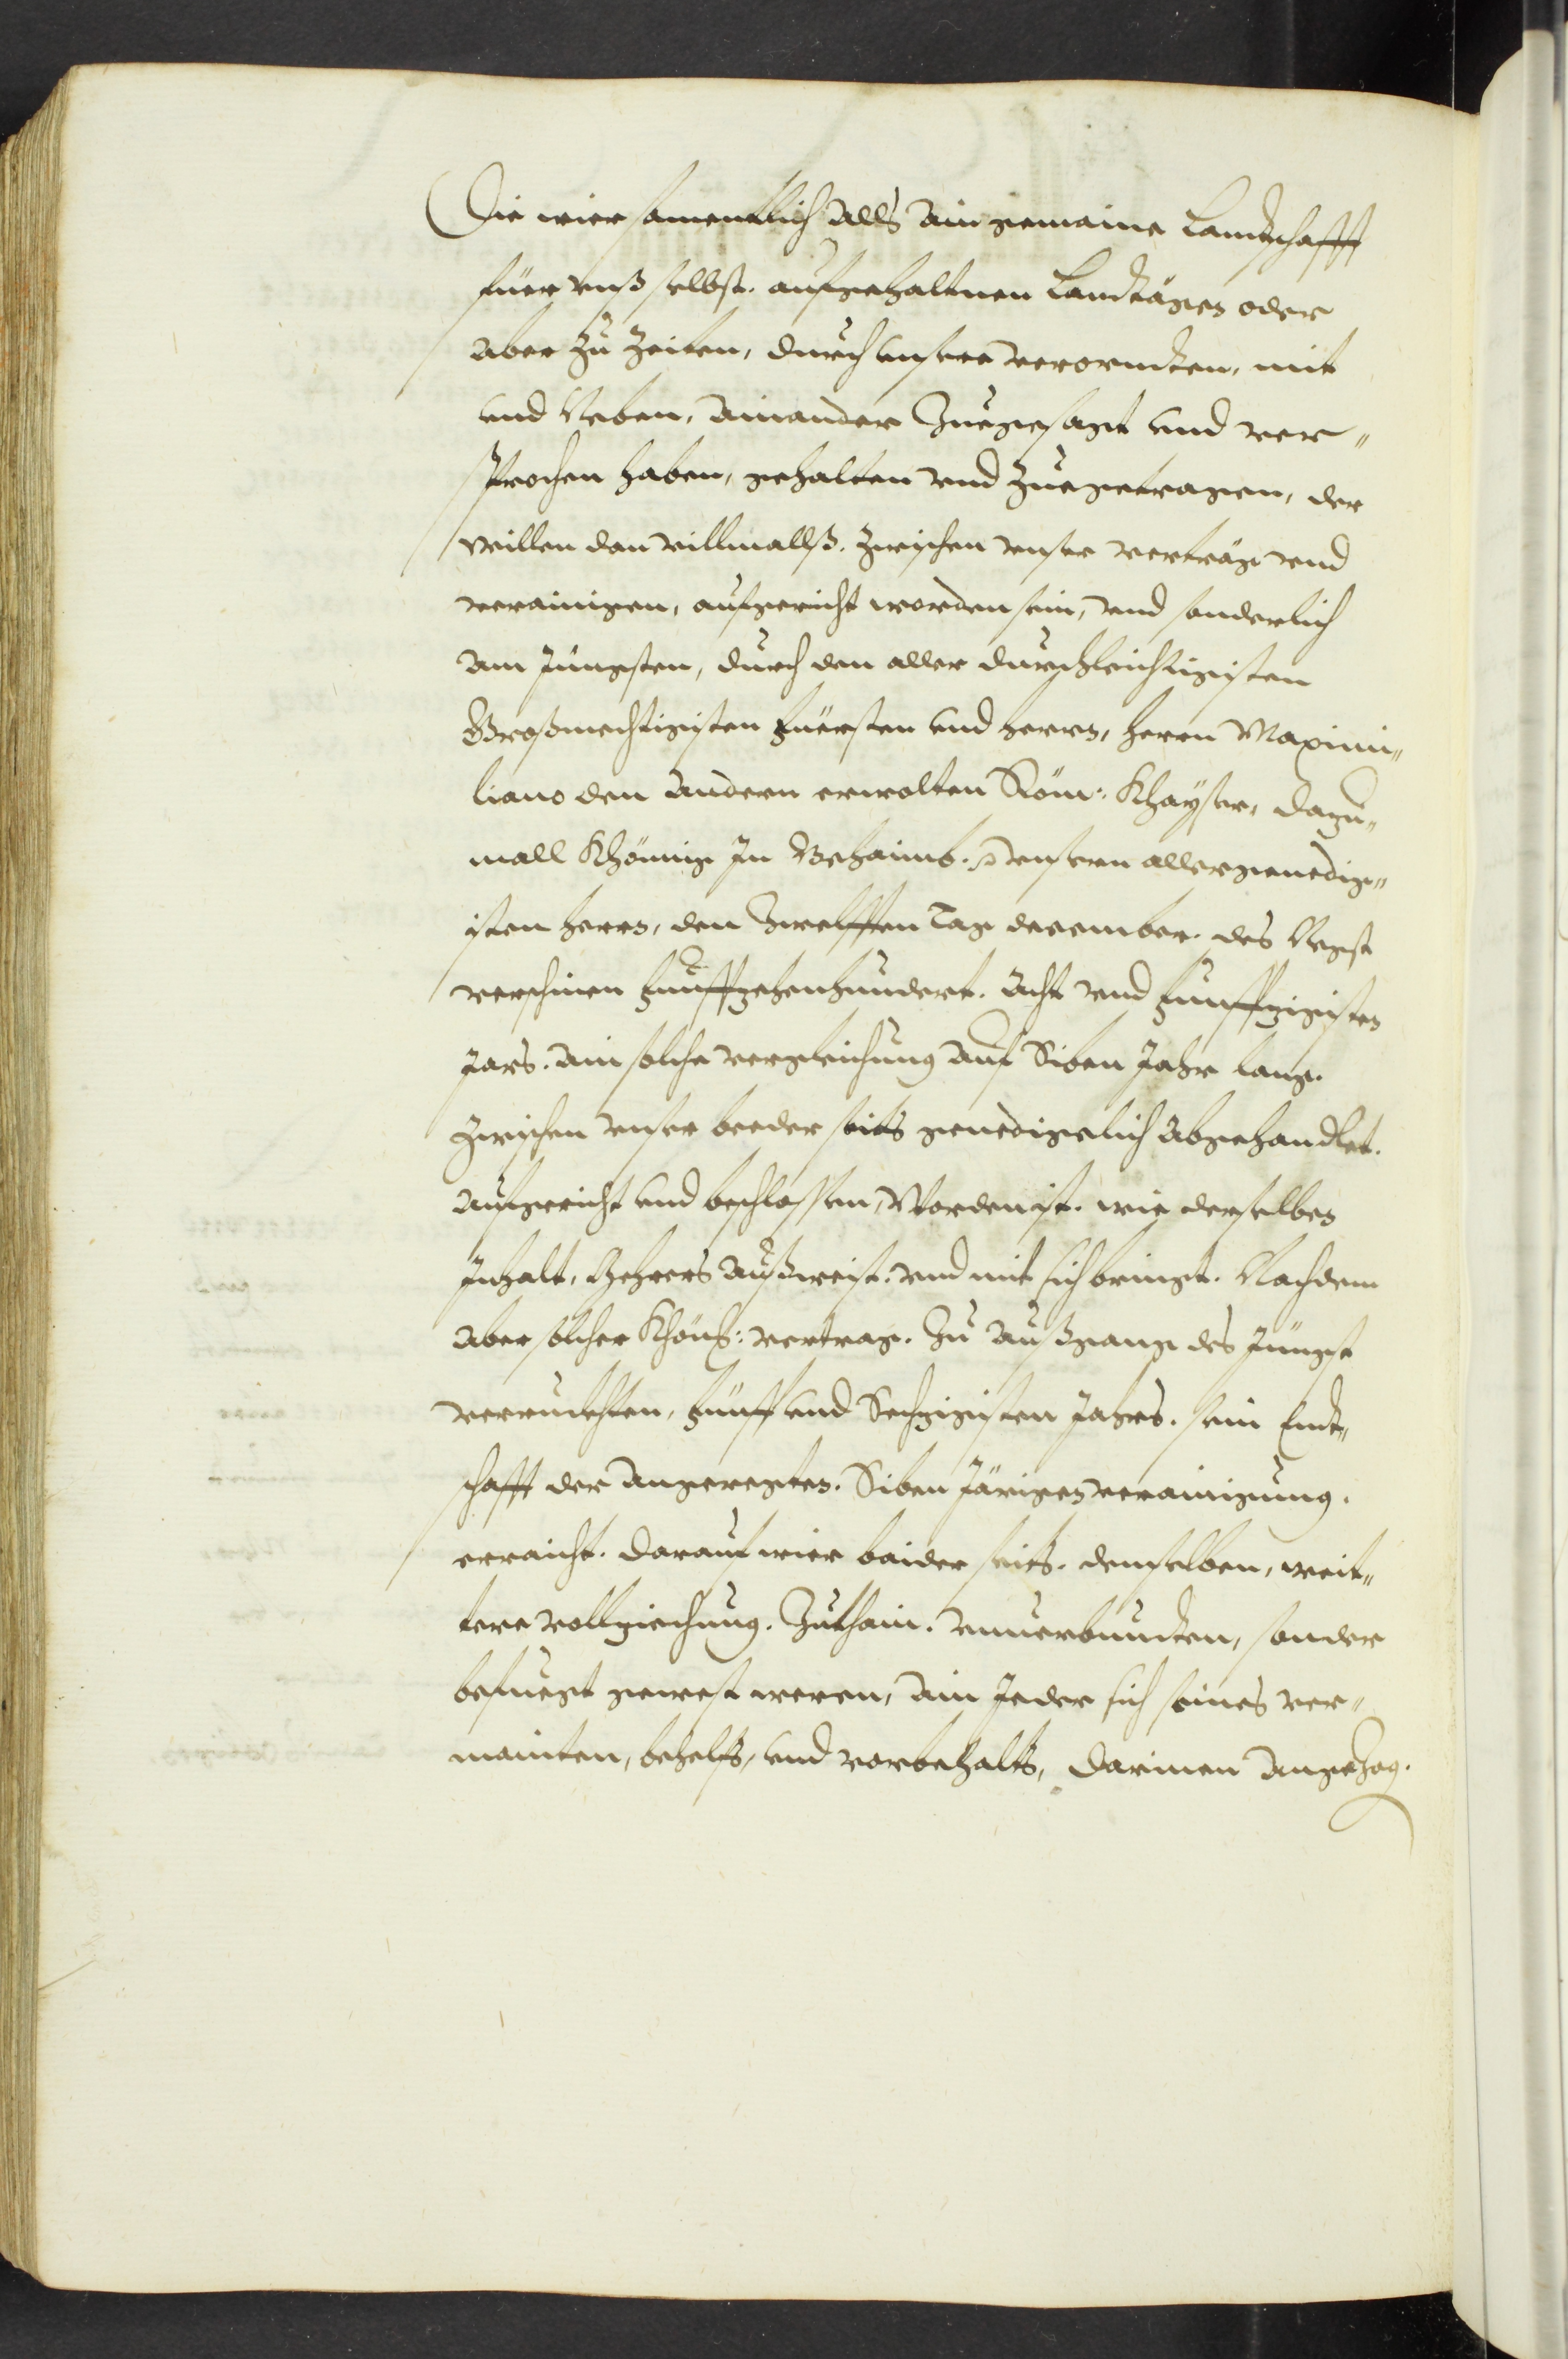 Die wier samentlich alls ain gemaine Landtschafft
fuer vnß selbst. auf gehaltnen Landtägen oder
aber zu Zeiten, durch vnsere verorndten, mit
vnd Neben, ainander Zuegesagt vnd ver„
sprochen haben, gehalten vnd zuegetragen, der
willen dan villmallß. zwischen vnser verträg vnd
verainigen, aufgericht worden sein, vnd sonderlich
am Jüngsten, durch den aller durchleichtigisten
Großmechtigisten Fuersten vnd herrn, herrn Maximi„
liano den andern erwolten Röm: Khayser, dazu„
mall Khönnig In Behaimb. vnsern allergenedig„
isten herrn, den Zwelfften Tag december. des Negst
verschinen Funffzehenhundert. Acht vnd Funffzigisten
Jars. ain solche vergleichung auf Siben Jahr lang.
zwischen vnser beeder seits genedigelich abgehandlet.
aufgericht vnd beschlossen, Worden ist. wie derselben
Inhalt, außweist. vnd mit sich bringt. Nachdem
aber solcher Khön: vertrag. Zu außgang des Jüngst
verruckhten, Funff vnd Sechzigisten Jahrs. sein Endt„
schafft der angeregten. Siben Järigen verainigung.
erraicht. darauf wier baider seits. demselben, weit„
tere vollziechung. Zuthain. vnuerbundten, sonder
befuegt gewest weren, ain Jeder sich seines ver„
mainten, behelfs, vnd vorbehalts, darinnen angezog.